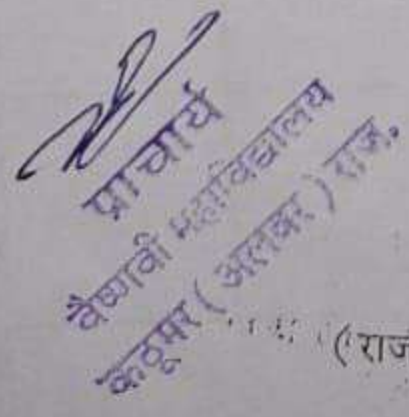 प्राचार्य
वैष्णवी महाविद्यालय
कठूमर ( अलवर ) राज.
(राज